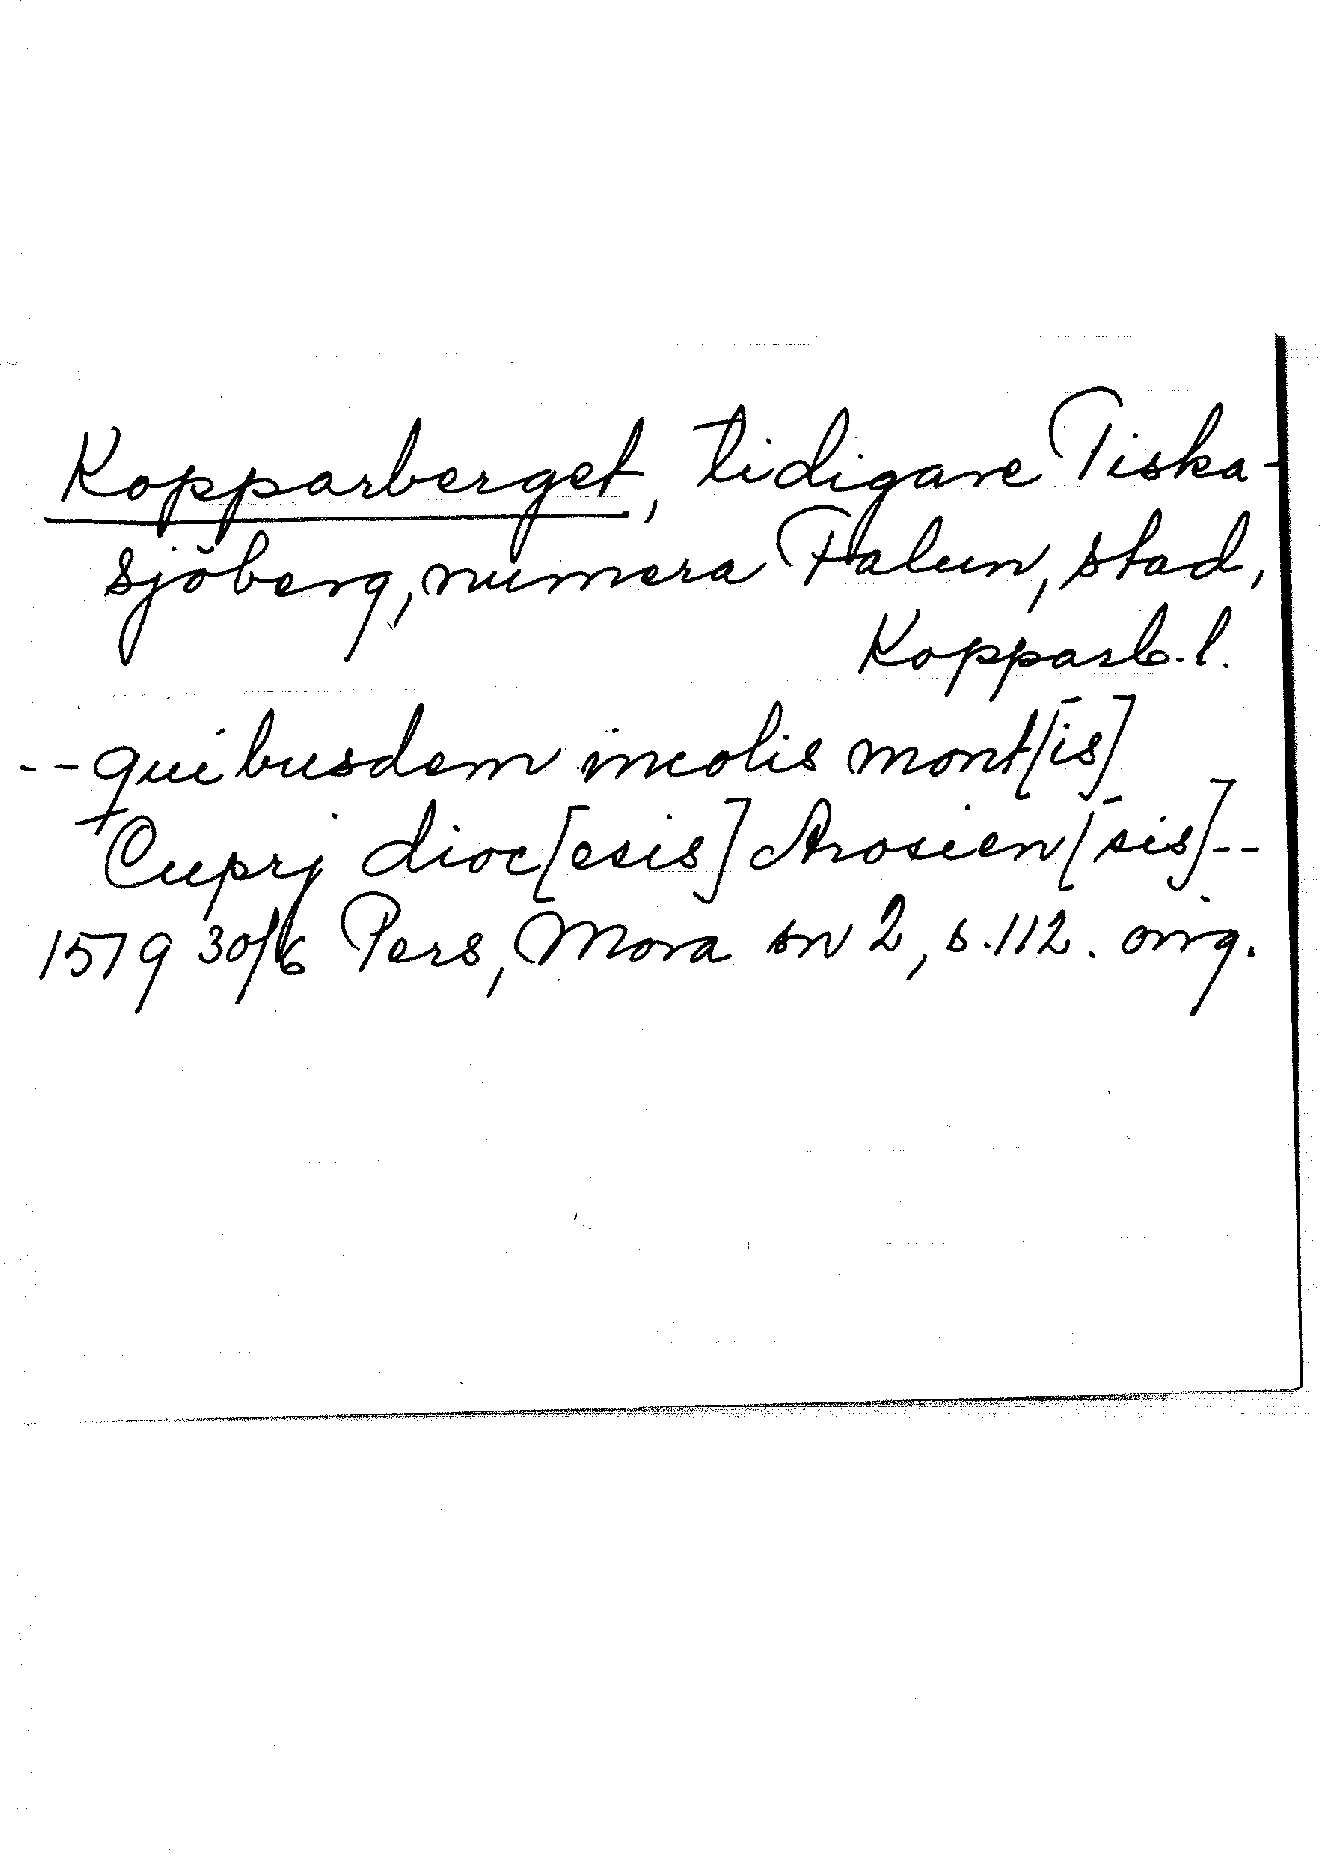 Kopparberget, tidigare Tiska-
sjöberg, numera Falun, stad,
Kopparb.l.
--quibusdam incolis mont[is]
Cuprj dioc[esis] Arosien[sis]--
1579 30/6 Pers, Mora sn 2, s.112. orig.